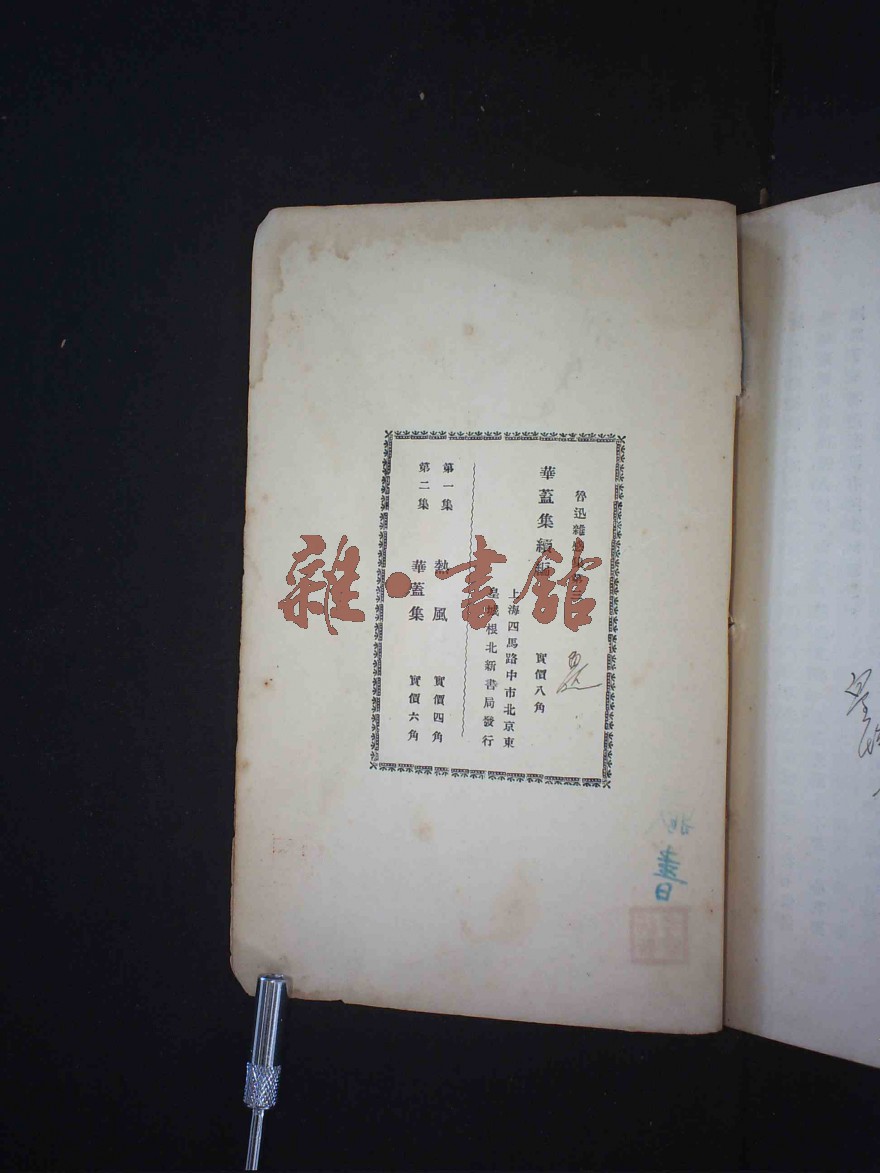 魯迅雜感
華蓋集續編
實價八角
上海四馬路中市北京東
皇城根北新書局發行
第一集 熱風 實價四角
第二集 華蓋集 實價六角
雜·書館
書